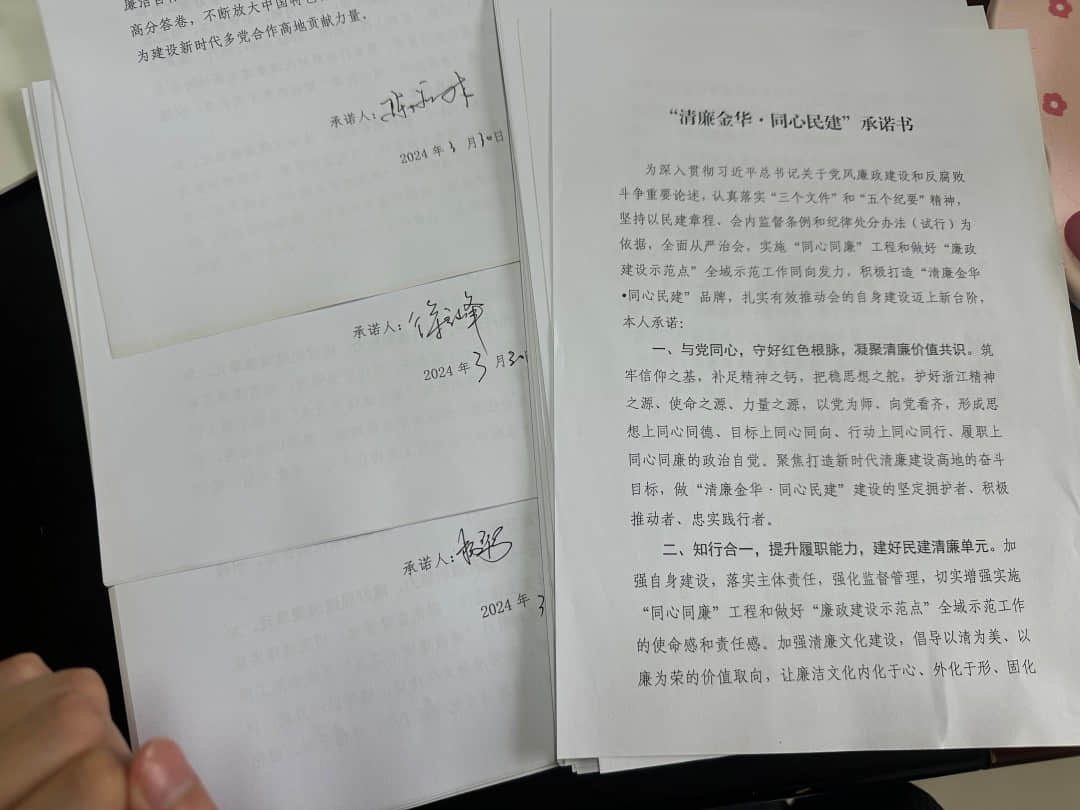 高分答卷，不断放大中国特色
为建设新时代多党合作高地贡献力量。
承诺人：
2024 年 3 月 30 日
承诺人：徐 峰
2024 年 3 月 30
承诺人：
2024 年 3
“清廉金华·同心民建”承诺书
为深入贯彻习近平总书记关于党风廉政建设和反腐败
斗争重要论述，认真落实“三个文件”和“五个纪要”精神，
坚持以民建章程、会内监督条例和纪律处分办法（试行）为
依据，全面从严治会，实施“同心同廉”工程和做好“廉政
建设示范点”全域示范工作同向发力，积极打造“清廉金华
•同心民建”品牌，扎实有效推动会的自身建设迈上新台阶，
本人承诺：
一、与党同心，守好红色根脉，凝聚清廉价值共识。筑
牢信仰之基，补足精神之钙，把稳思想之舵，护好浙江精神
之源、使命之源、力量之源，以党为师、向党看齐，形成思
想上同心同德、目标上同心同向、行动上同心同行、履职上
同心同廉的政治自觉。聚焦打造新时代清廉建设高地的奋斗
目标，做“清廉金华·同心民建”建设的坚定拥护者、积极
推动者、忠实践行者。
二、知行合一，提升履职能力，建好民建清廉单元。加
强自身建设，落实主体责任，强化监督管理，切实增强实施
“同心同廉”工程和做好“廉政建设示范点”全域示范工作
的使命感和责任感。加强清廉文化建设，倡导以清为美、以
廉为荣的价值取向，让廉洁文化内化于心、外化于形、固化